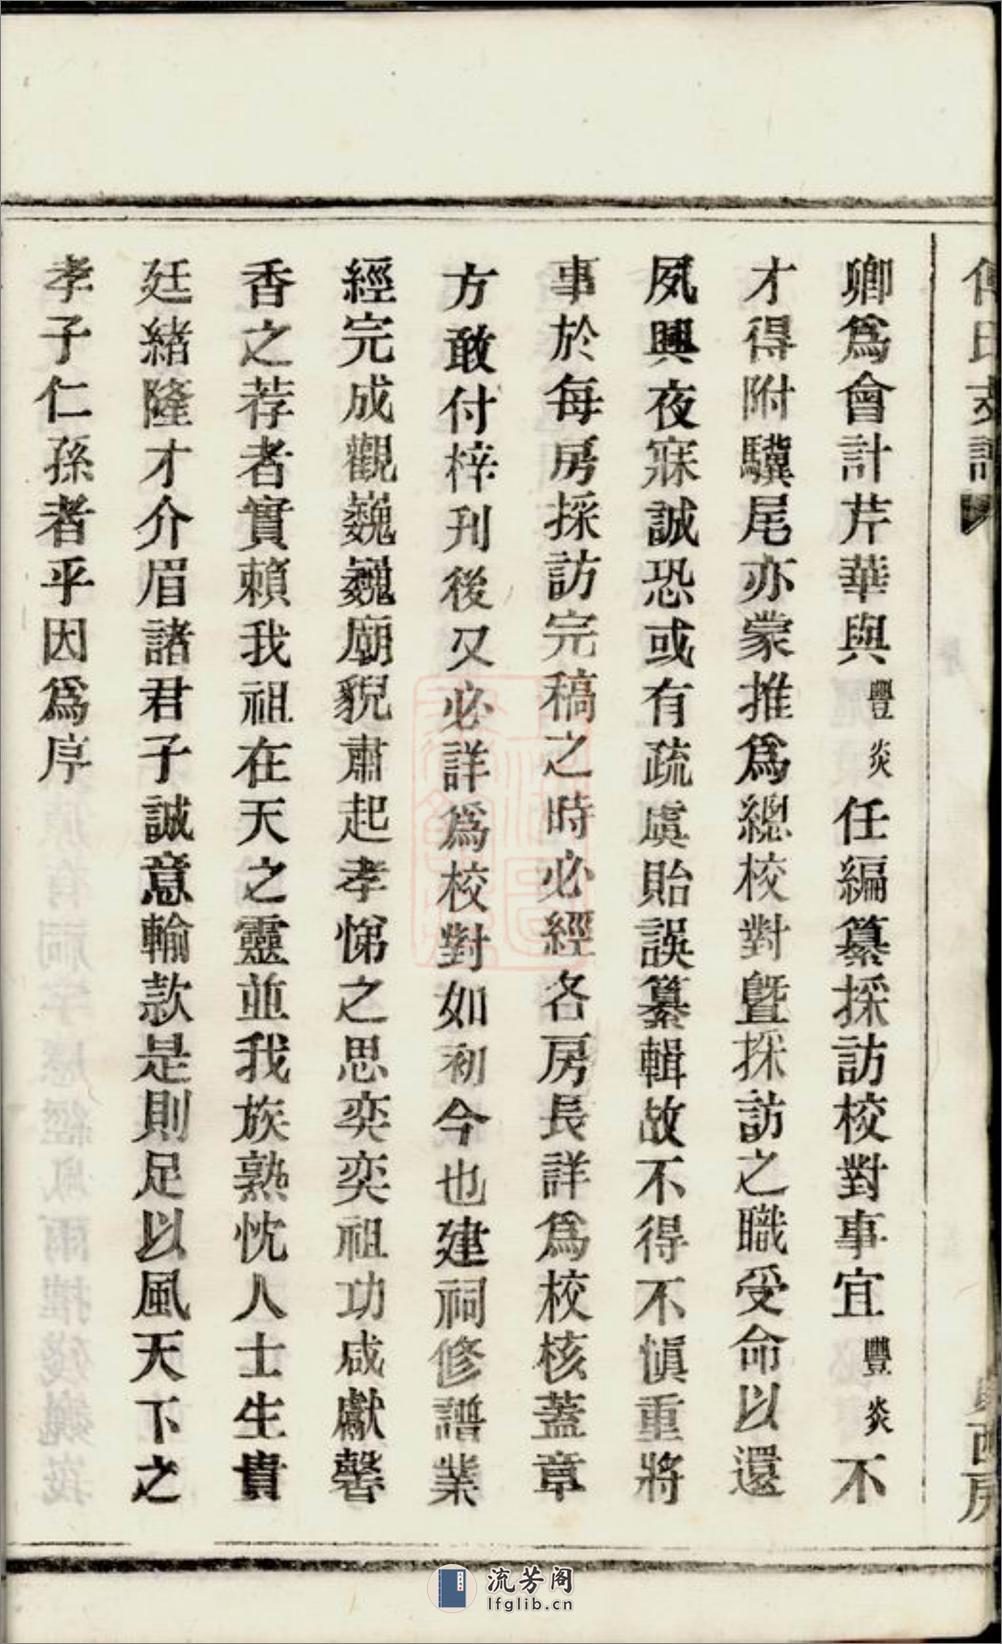 氏支譜
西房
卿爲會計芹華與豐炎任編纂採訪校對事宜豐炎不
才得附驥尾亦蒙推爲總校對暨採訪之職受命以還
夙興夜寐誠恐或有疏虞貽誤纂輯故不得不愼重將
事於每房採訪完稿之時必經各房長詳爲校核蓋章
方敢付梓刊後又必詳爲校對如初今也建祠修譜業
經完成觀巍巍廟貌肅起孝悌之思奕奕祖功咸獻馨
香之荐者實賴我祖在天之靈並我族熟忱人士生貴
廷緒隆才介眉諸君子誠意輸款是則足以風天下之
孝子仁孫者乎因爲序
流芳阁
lfglib.cn